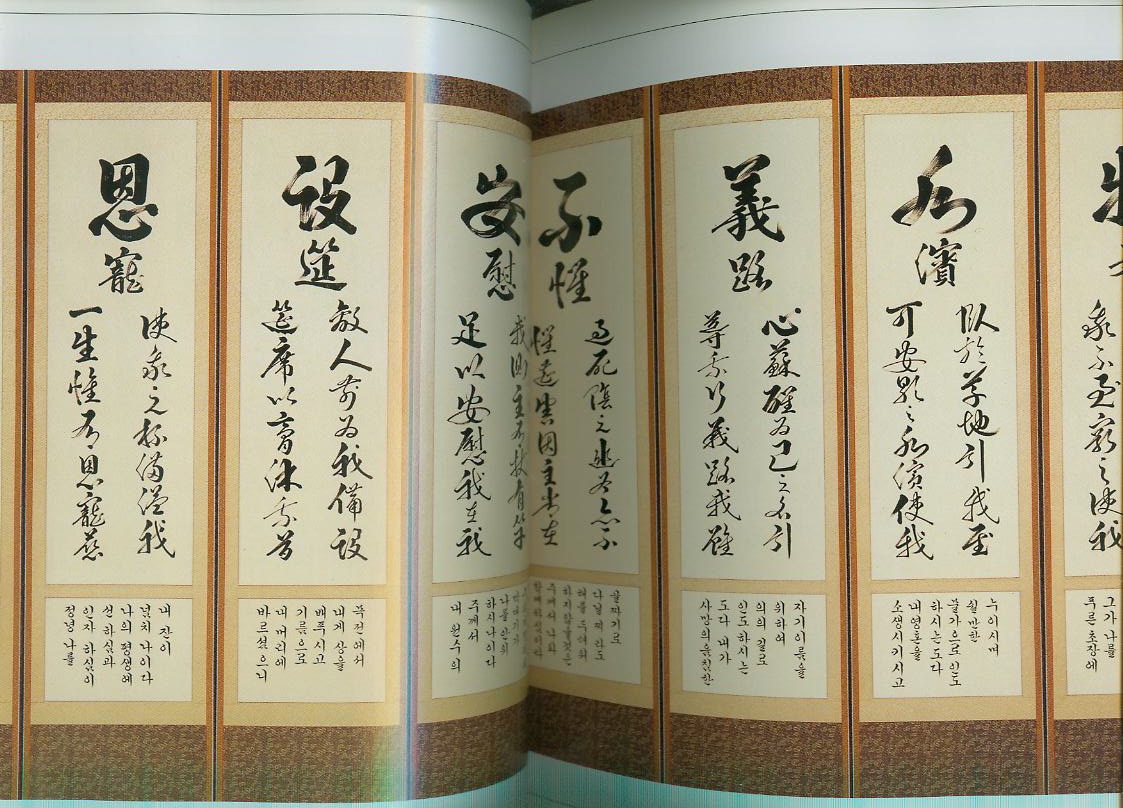 我不至窮之使我
그가 나를
푸른 초장에
水
濱
臥於草地引我至
可安歇之水濱使我
누이시며
쉴만한
물가으로 인도
하시는도다
내영혼을
소생시키시고
義
路
心蘇醒為己之名引
導我行義路我雖
자기이름을
위하여
의의 길로
인도하시는
도다 내가
사망의음침한
不
懼
過死陰之幽谷亦不
懼遭害因主常在
골짜기로
다닐찌라도
해를 두려워
하지않을것은
주께서 나와
함께하심이라
安
慰
我側主有杖有竿
足以安慰我在我
막대기가
나를안위
하시나이다
주께서
내 원수의
設
筵
敵人前為我備設
筵席以膏沐我首
목전에서
내게 상을
베푸시고
기름으로
내 머리에
바르셨으니
恩
寵
使我之杯滿溢我
一生惟有恩寵慈
내 잔이
넘치나이다
나의 평생에
선하심과
인자하심이
정녕 나를